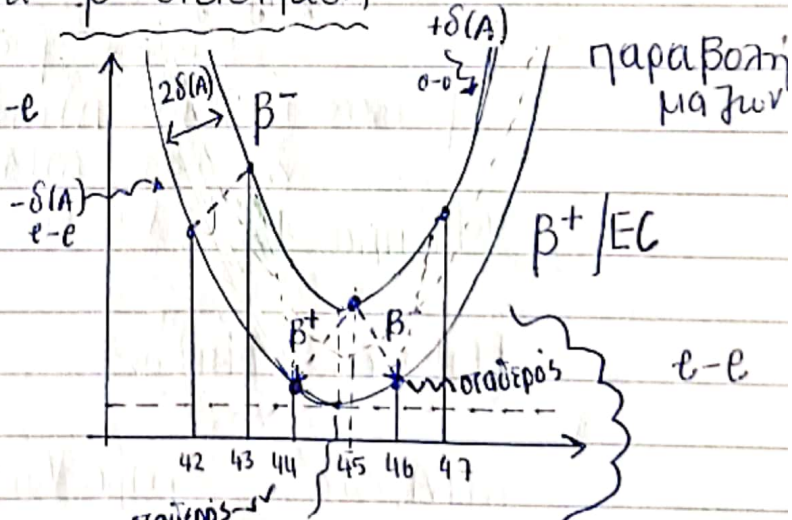 +δ(A)
ο-ο
παραβολή
μαζων
2δ(A)
β⁻
-e
-δ(A)
e-e
β⁺/EC
β⁺
β⁻
σταθερός
e-e
42 43 44 45 46 47
σταθερός